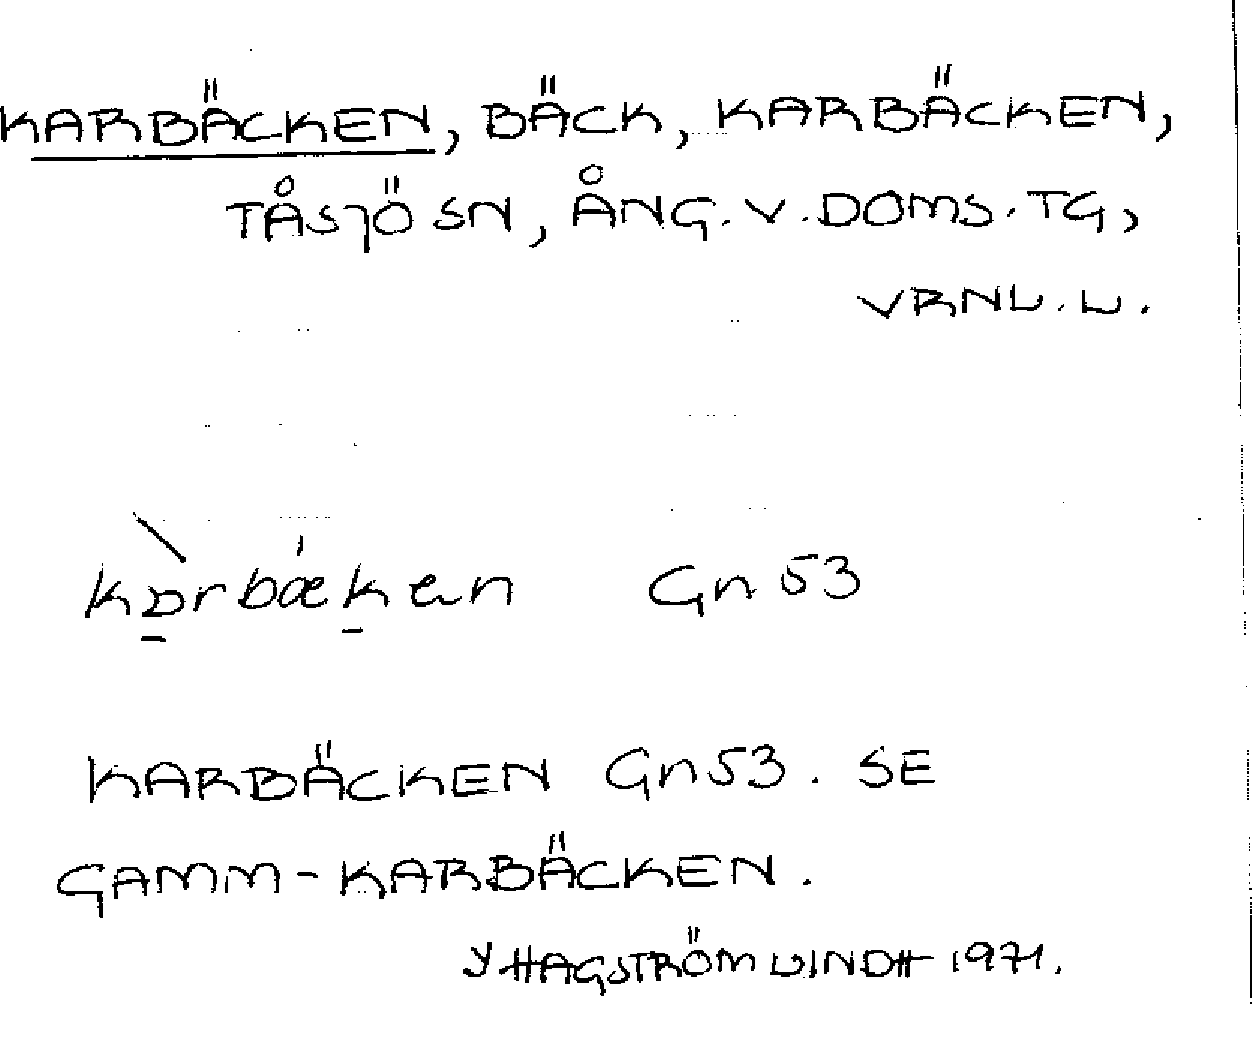 KARBÄCKEN, BÄCK, KARBÄCKEN,
TÅSJÖ SN, ÅNG. V. DOMS. TG,
VRNL. L.
kɒ̱̀rbæ̍ḵen Gn 53
KARBÄCKEN Gn53. SE
GAMM-KARBÄCKEN.
Y HAGSTRÖM LINDH 1971.